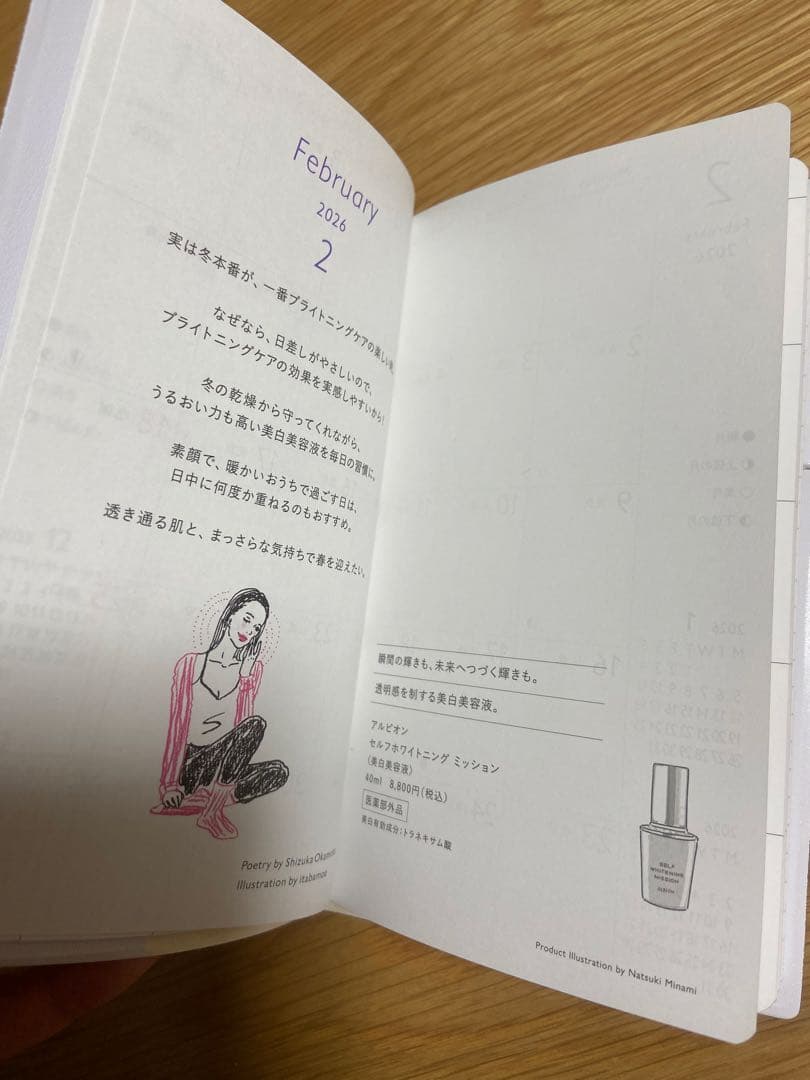 February
2026
2
実は冬本番が、一番ブライトニングケアの楽しい
なぜなら、日差しがやさしいので、
ブライトニングケアの効果を実感しやすいから！
冬の乾燥から守ってくれながら、
うるおい力も高い美白美容液を毎日の習慣に。
素顔で、暖かいおうちで過ごす日は、
日中に何度か重ねるのもおすすめ。
透き通る肌と、まっさらな気持ちで春を迎えたい。
Poetry by Shizuka
Illustration by itabamoe
瞬間の輝きも、未来へつづく輝きも。
透明感を制する美白美容液。
アルビオン
セルフホワイトニング ミッション
(美白美容液)
40ml 8,800円(税込)
医薬部外品
美白有効成分：トラネキサム酸
SELF
WHITENING
MISSION
ALBION
Product Illustration by Natsuki Minami